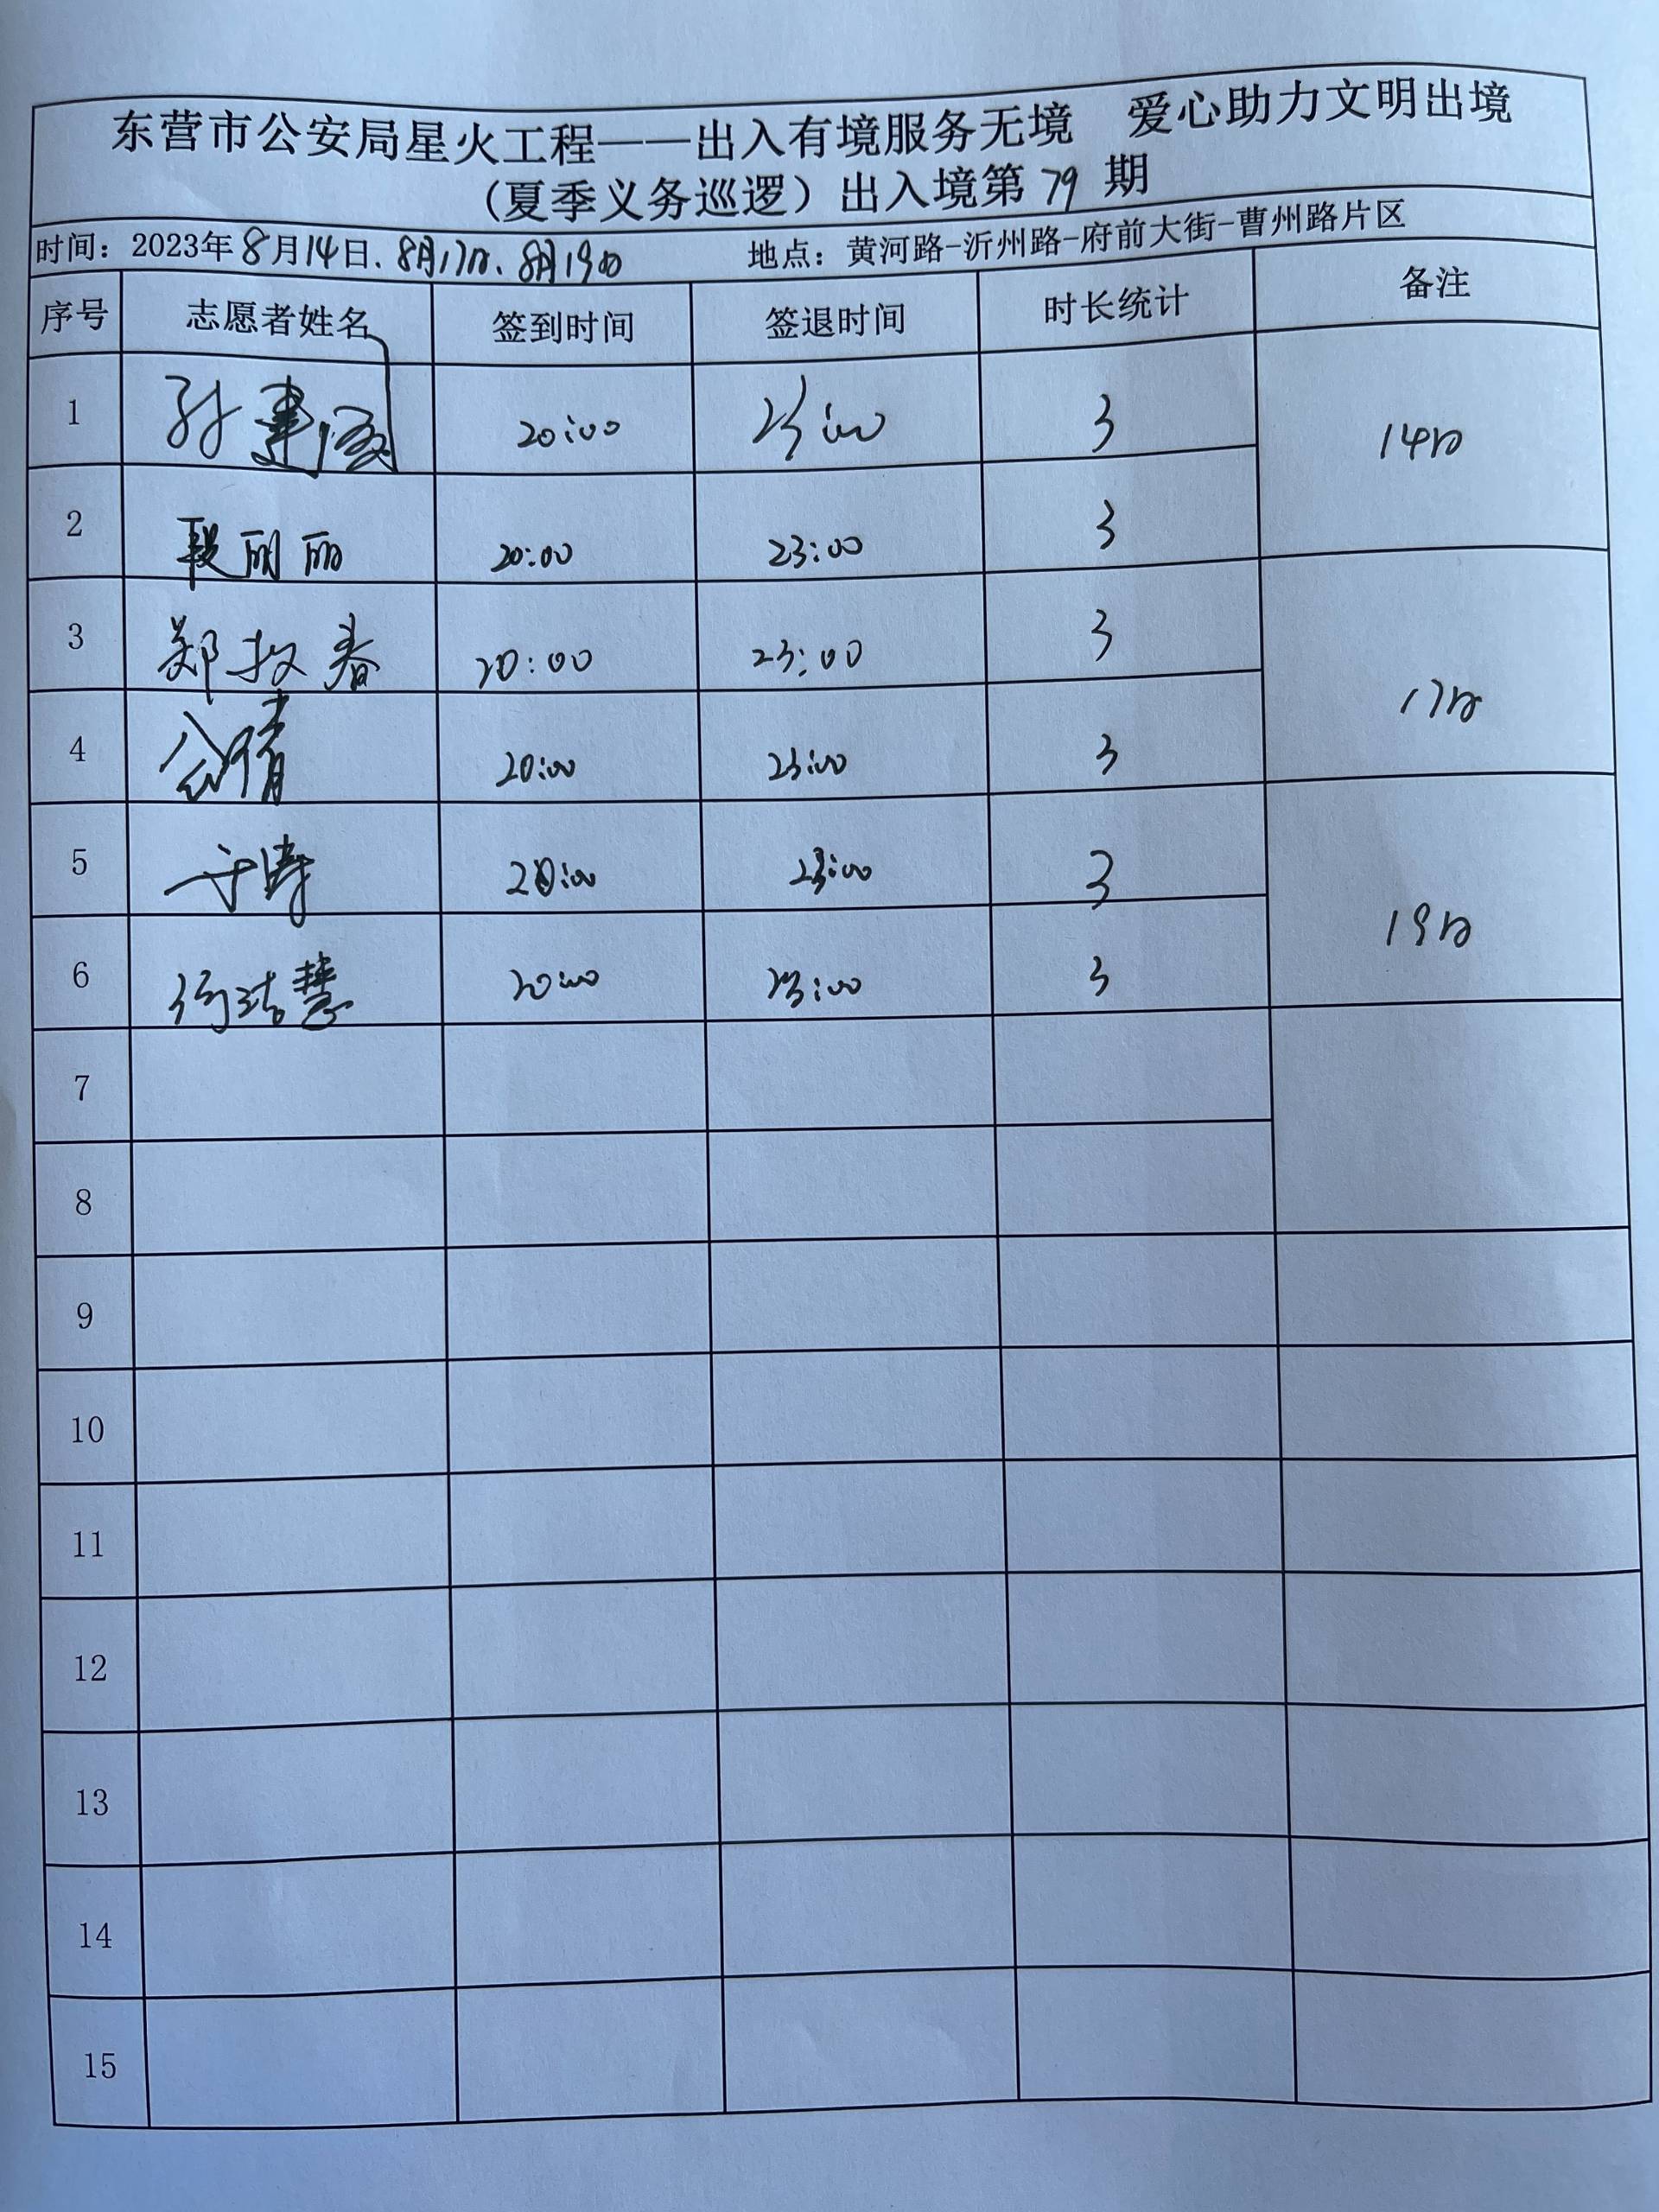 东营市公安局星火工程——出入有境服务无境 爱心助力文明出境
（夏季义务巡逻）出入境第79期
时间：2023年8月14日、8月17日、8月19日 地点：黄河路-沂州路-府前大街-曹州路片区
序号 志愿者姓名 签到时间 签退时间 时长统计 备注
1 孙建 20:00 23:00 3 14日
2 段丽丽 20:00 23:00 3
3 郑春 20:00 23:00 3 17日
4 公倩 20:00 23:00 3
5 于涛 20:00 23:00 3 19日
6 洁慧 20:00 23:00 3
7
8
9
10
11
12
13
14
15